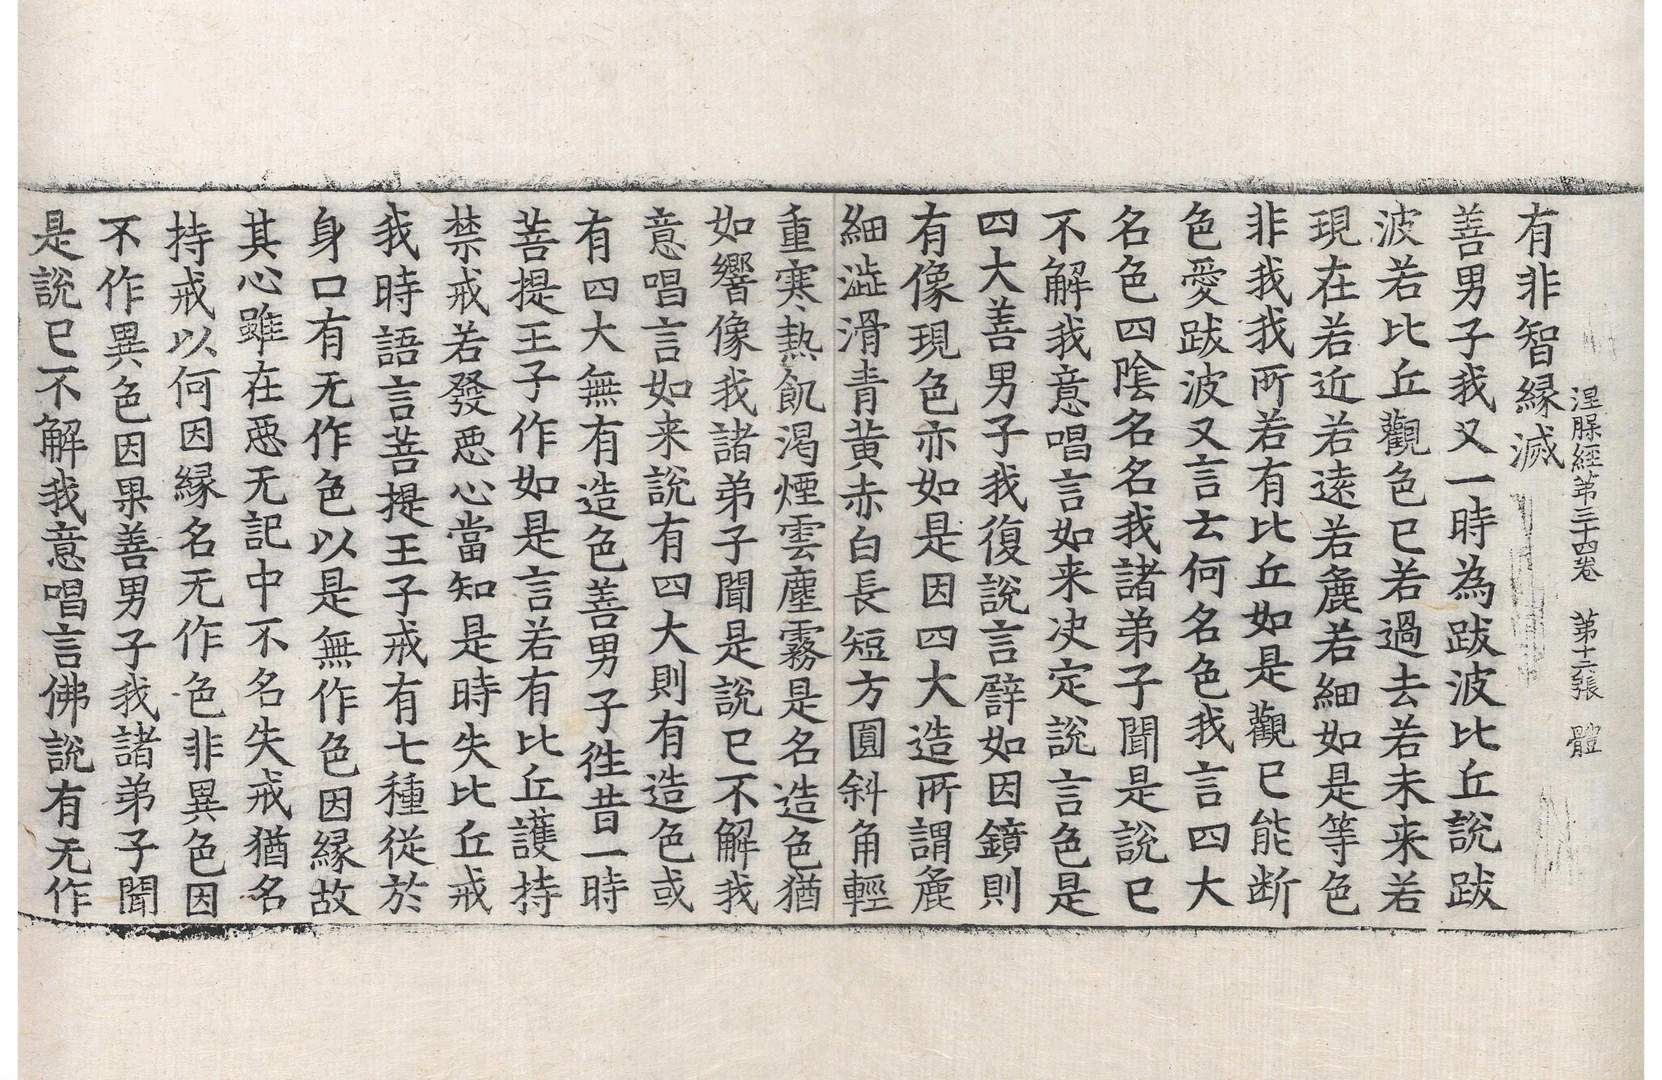 涅槃經苐三十四卷　苐十六張　體
有非智縁滅
善男子我又一時為跋波比丘說跋
波若比丘觀色已若過去若未来若
現在若近若遠若麁若細如是等色
非我我所若有比丘如是觀已能断
色愛跋波又言云何名色我言四大
名色四陰名名我諸弟子聞是說已
不解我意唱言如来决定說言色是
四大善男子我復說言譬如因鏡則
有像現色亦如是因四大造所謂麁
細澁滑青黄赤白長短方圓斜角輕
重寒熱飢渴煙雲塵霧是名造色猶
如響像我諸弟子聞是說已不解我
意唱言如来說有四大則有造色或
有四大無有造色善男子徃昔一時
菩提王子作如是言若有比丘護持
禁戒若發惡心當知是時失比丘戒
我時語言菩提王子戒有七種從於
身口有无作色以是無作色因縁故
其心雖在惡无記中不名失戒猶名
持戒以何因縁名无作色非異色因
不作異色因果善男子我諸弟子聞
是說已不解我意唱言佛說有无作